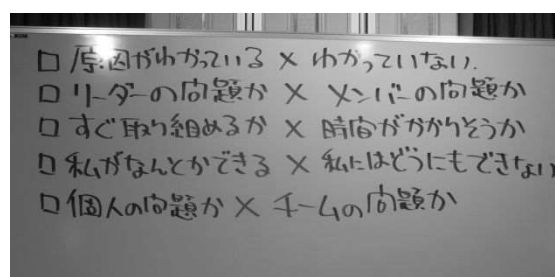 □ 原因がわかっている × わかっていない.
□ リーダーの問題か × メンバーの問題か
□ すぐ取り組めるか × 時間がかかりそうか
□ 私がなんとかできる × 私にはどうにもできない
□ 個人の問題か × チームの問題か